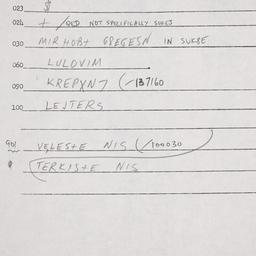 023 $
024 + /OLD NOT SPECIFICALLY
030 MIRHOBT GREGESN IN SUKBE
060 LULOVIM
090 KREPXN7 (/137160
100 LEJTERS
901 VELESTE NIS (/100030
TERKISTE NIS